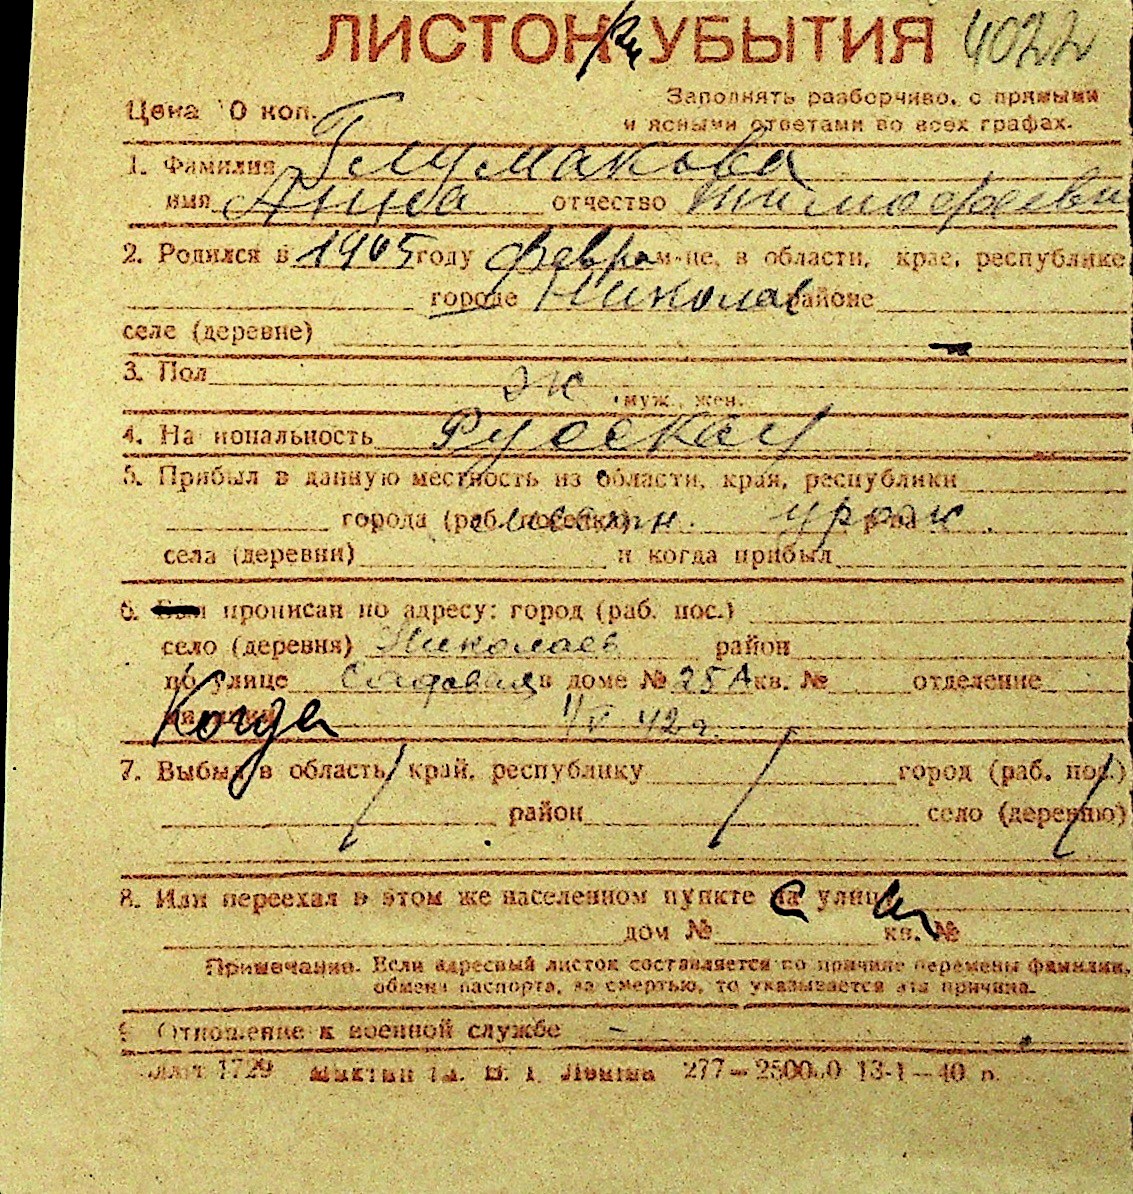 ЛИСТОК УБЫТИЯ 4022
Цена 10 коп.
Заполнять разборчиво, с прямыми
и ясными ответами во всех графах.
1. Фамилия Глумакова
имя Анна отчество Тимофеевн
2. Родился в 1905 году февра м-це, в области, крае, республике
городе Николаев районе
селе (деревне)
3. Пол ж
муж., жен.
4. Национальность Русская
5. Прибыл в данную местность из области, края, республики
города (раб. поселка) местн. р-на урож.
села (деревни) и когда прибыл
6. Был прописан по адресу: город (раб. пос.)
село (деревня) Николаев район
по улице Садовая в доме № 25А кв. № отделение
милиции Когда 11/V 42 г.
7. Выбыл в область, край, республику город (раб. пос.)
район село (деревню)
8. Или переехал в этом же населенном пункте на улицу
дом № кв. №
Примечание. Если адресный листок составляется по причине перемены фамилии,
обмена паспорта, за смертью, то указывается эта причина.
9. Отношение к военной службе –
1729 Ленина 277–2500 0 13-I–40 г.